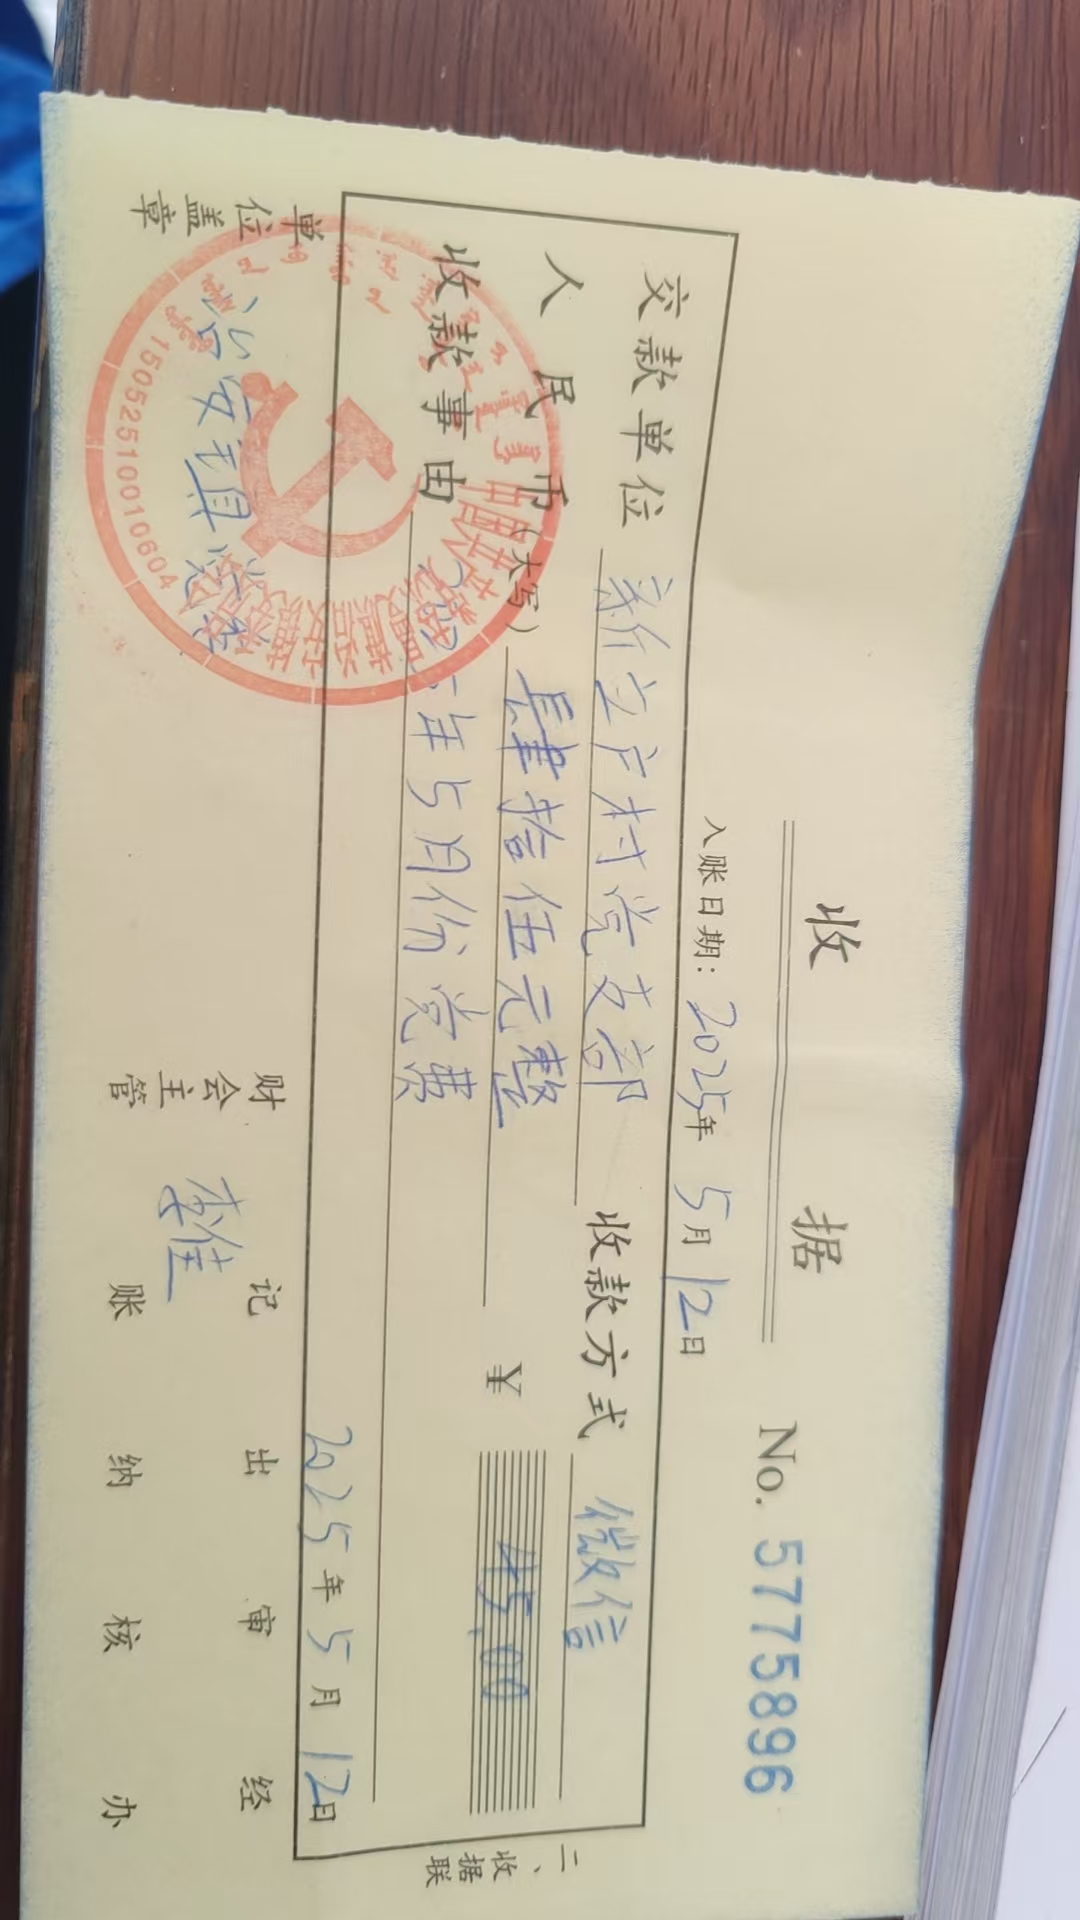 收 据
No. 5775896
入账日期: 2025年 5月 12日
交款单位 新立户村党支部 收款方式 微信
人民币(大写) 肆拾伍元整 ¥ 45.00
收款事由 年5月份党费
2025年 5月 12日
二、收据联
单位盖章 治安镇党
财会主管 李佳 记账 出纳 审核 经办
1505251001060４